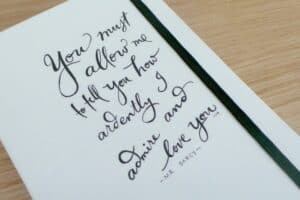 You must
allow me
to tell you how
ardently I
admire and
love you
- MR DARCY -